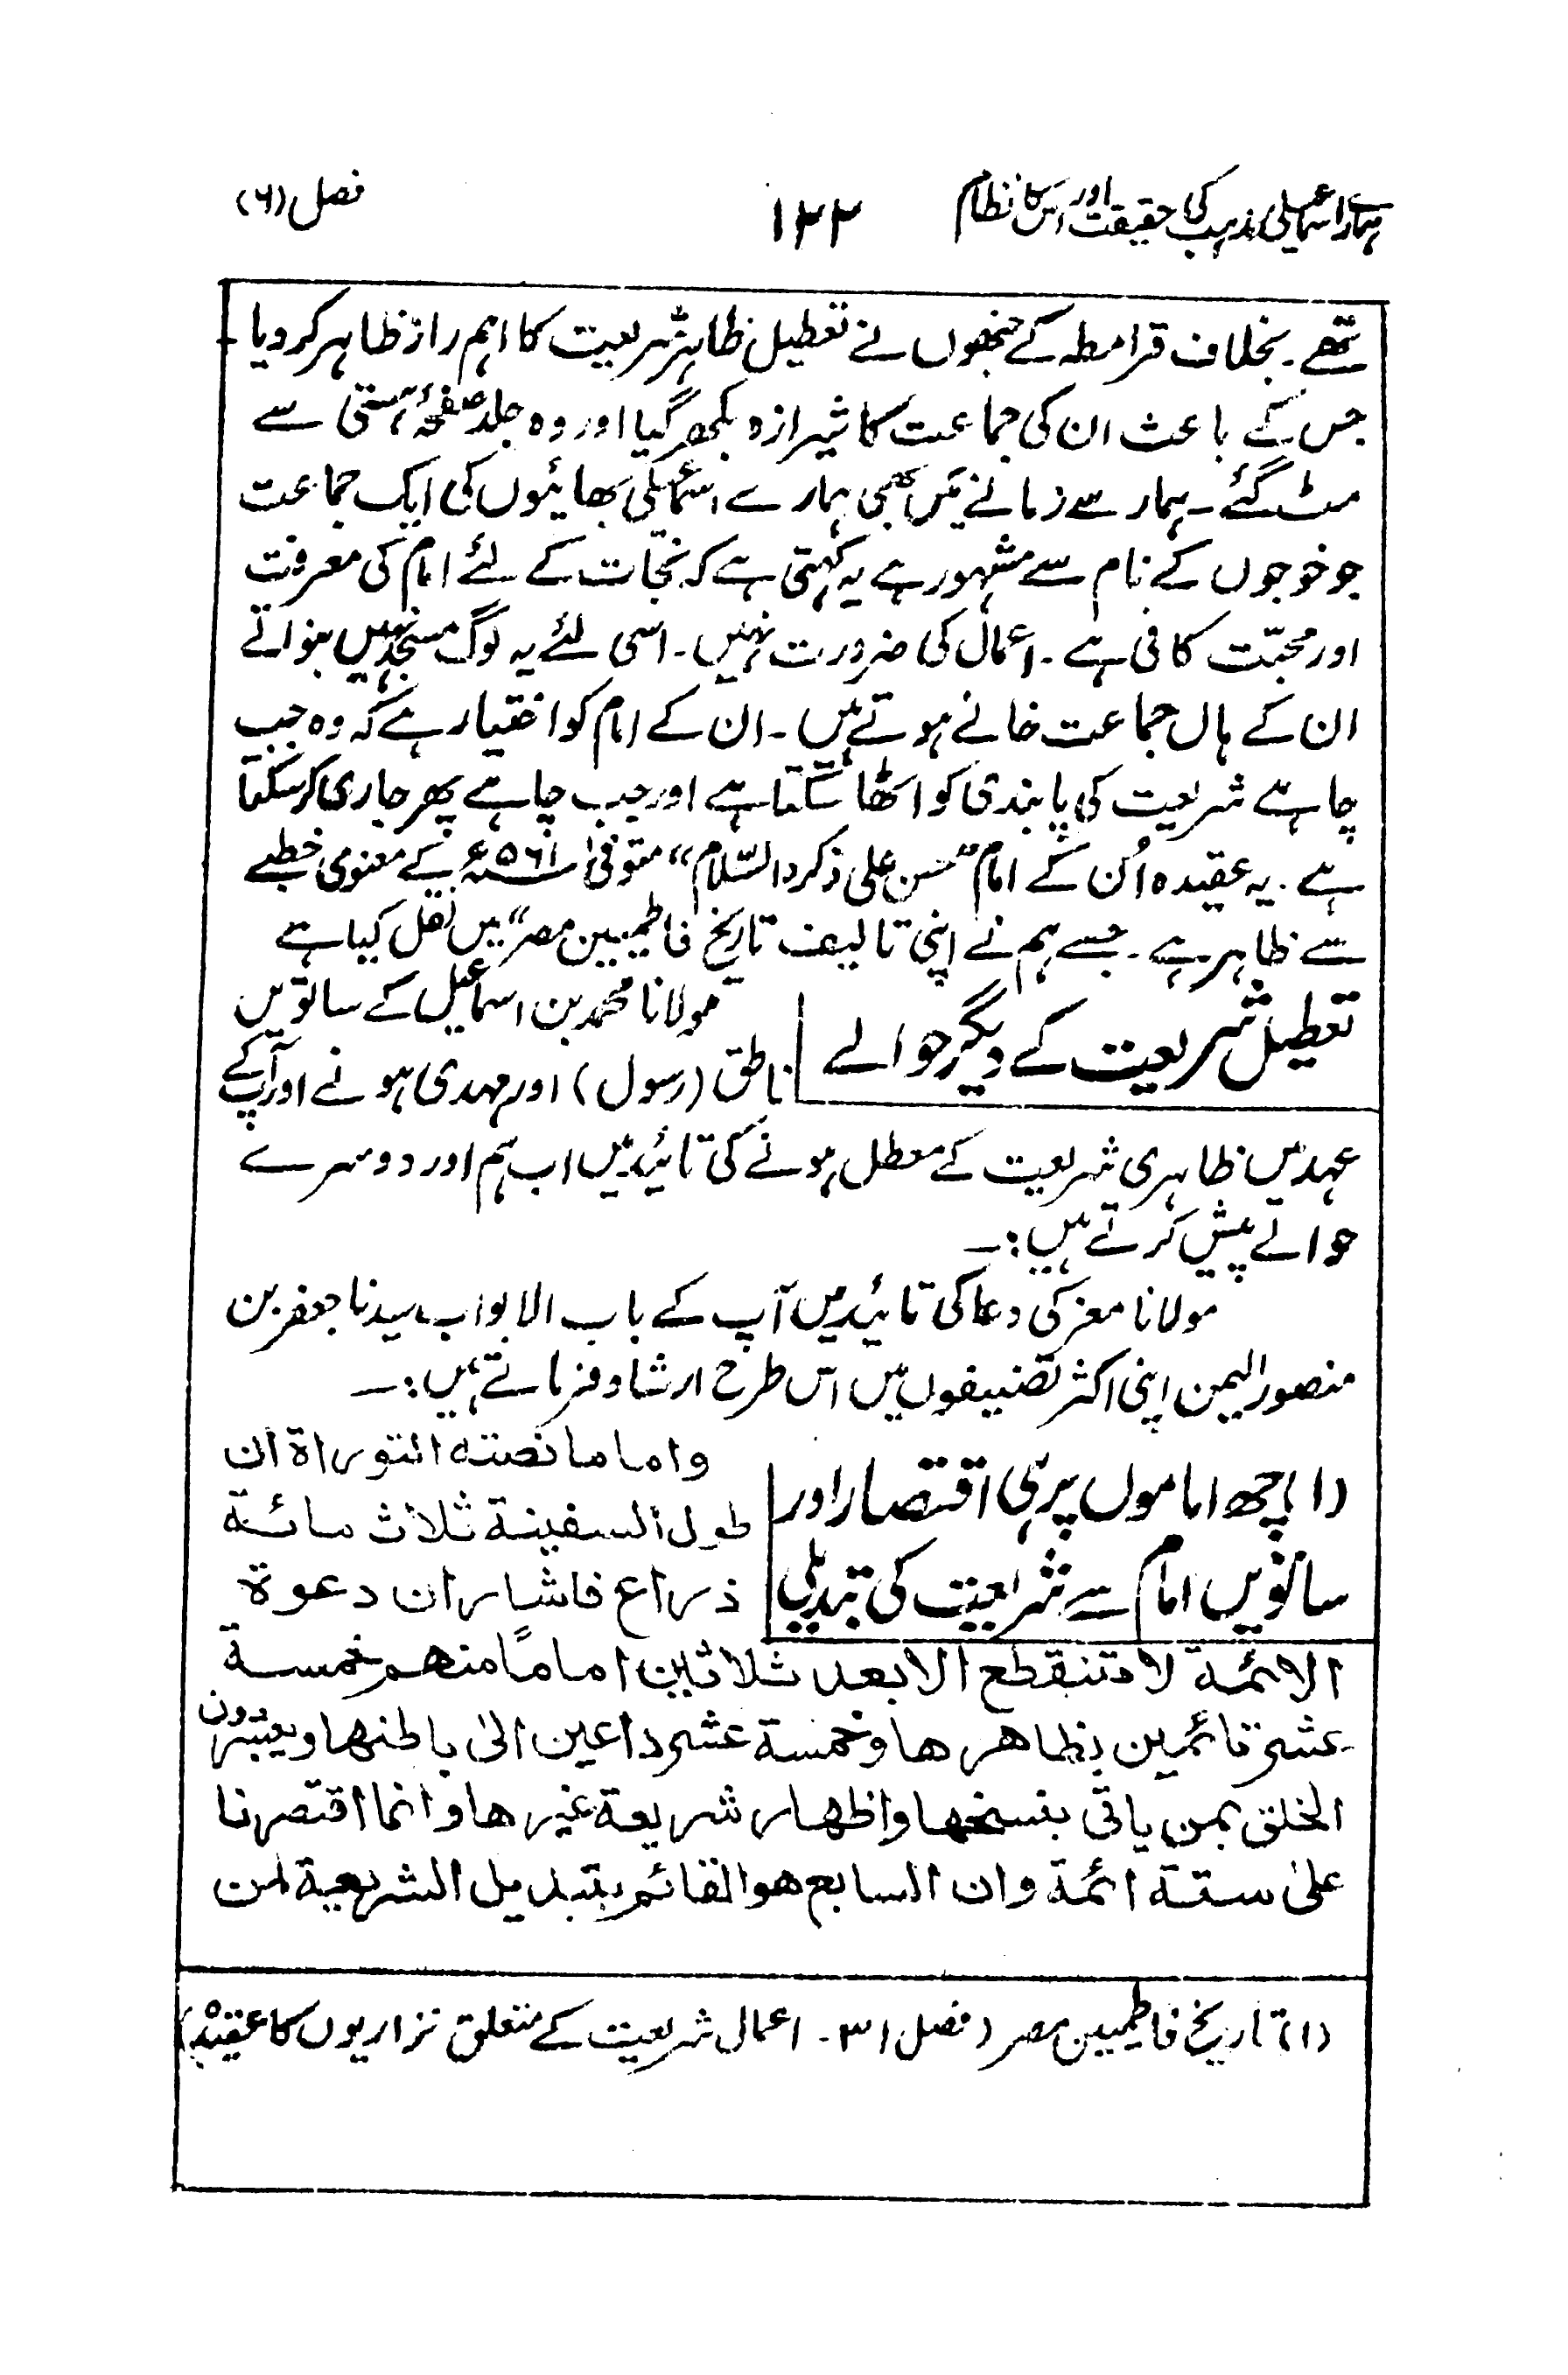 ہمارے اسماعیلی مذہب کی حقیقت اور اس کا نظام
۱۲۲
فصل (۶)
تھے۔ بخلاف قرامطہ کے جنھوں نے تعطیل ظاہر شریعت کا اہم راز ظاہر کر دیا۔
جس کے باعث ان کی جماعت کا شیرازہ بکھر گیا اور وہ جلد صفحۂ ہستی سے
مٹ گئے۔ ہمارے زمانے میں بھی ہمارے اسمٰعیلی بھائیوں کی ایک جماعت
جو خوجوں کے نام سے مشہور ہے یہ کہتی ہے کہ نجات کے لئے امام کی معرفت
اور محبّت کافی ہے۔ اعمال کی ضرورت نہیں۔ اسی لئے یہ لوگ مسجد نہیں بنواتے
ان کے ہاں جماعت خانے ہوتے ہیں۔ ان کے امام کو اختیار ہے کہ وہ جب
چاہے شریعت کی پابندی کو اٹھا سکتا ہے اور جب چاہے پھر جاری کر سکتا
ہے۔ یہ عقیدہ اُن کے امام "حسن علی ذکرہ السّلام" متوفیٰ ۵۶۱ھ کے معنوی خطبے
سے ظاہر ہے۔ جسے ہم نے اپنی تالیف تاریخ فاطمیین مصر" میں نقل کیا ہے
تعطیل شریعت کے دیگر حوالے
مولانا محمد بن اسماعیل کے ساتویں
ناطق (رسول) اور مہدی ہونے اور آپ کے
عہد میں ظاہری شریعت کے معطل ہونے کی تائید میں اب ہم اور دوسرے
حوالے پیش کرتے ہیں :۔
مولانا معز کی دعا کی تائید میں آپ کے باب الابواب سیدنا جعفر بن
منصور الیمن اپنی اکثر تصنیفوں میں اس طرح ارشاد فرماتے ہیں :۔
(۱) چھ اماموں پر ہی اقتصار اور
ساتویں امام سے شریعت کی تبدیلی
واما ما نصته التوراة ان
طول السفينة ثلاث مائة
ذراع فاشار ان دعوة
الائمة لا تنقطع الا بعد ثلاثين اماماً منهم خمسة
عشر قائمين بظاهرها وخمسة عشر داعين الىٰ باطنها ويبشرون
الخلق بمن ياتى بنسخها واظهار شريعة غيرها وانما اقتصرنا
علىٰ ستة ائمة وان السابع هو القائم بتبديل الشريعة لمن
(۱) تاریخ فاطمیین مصر (فصل ۳۱۔ اعمال شریعت کے متعلق نزاریوں کا عقیدہ)